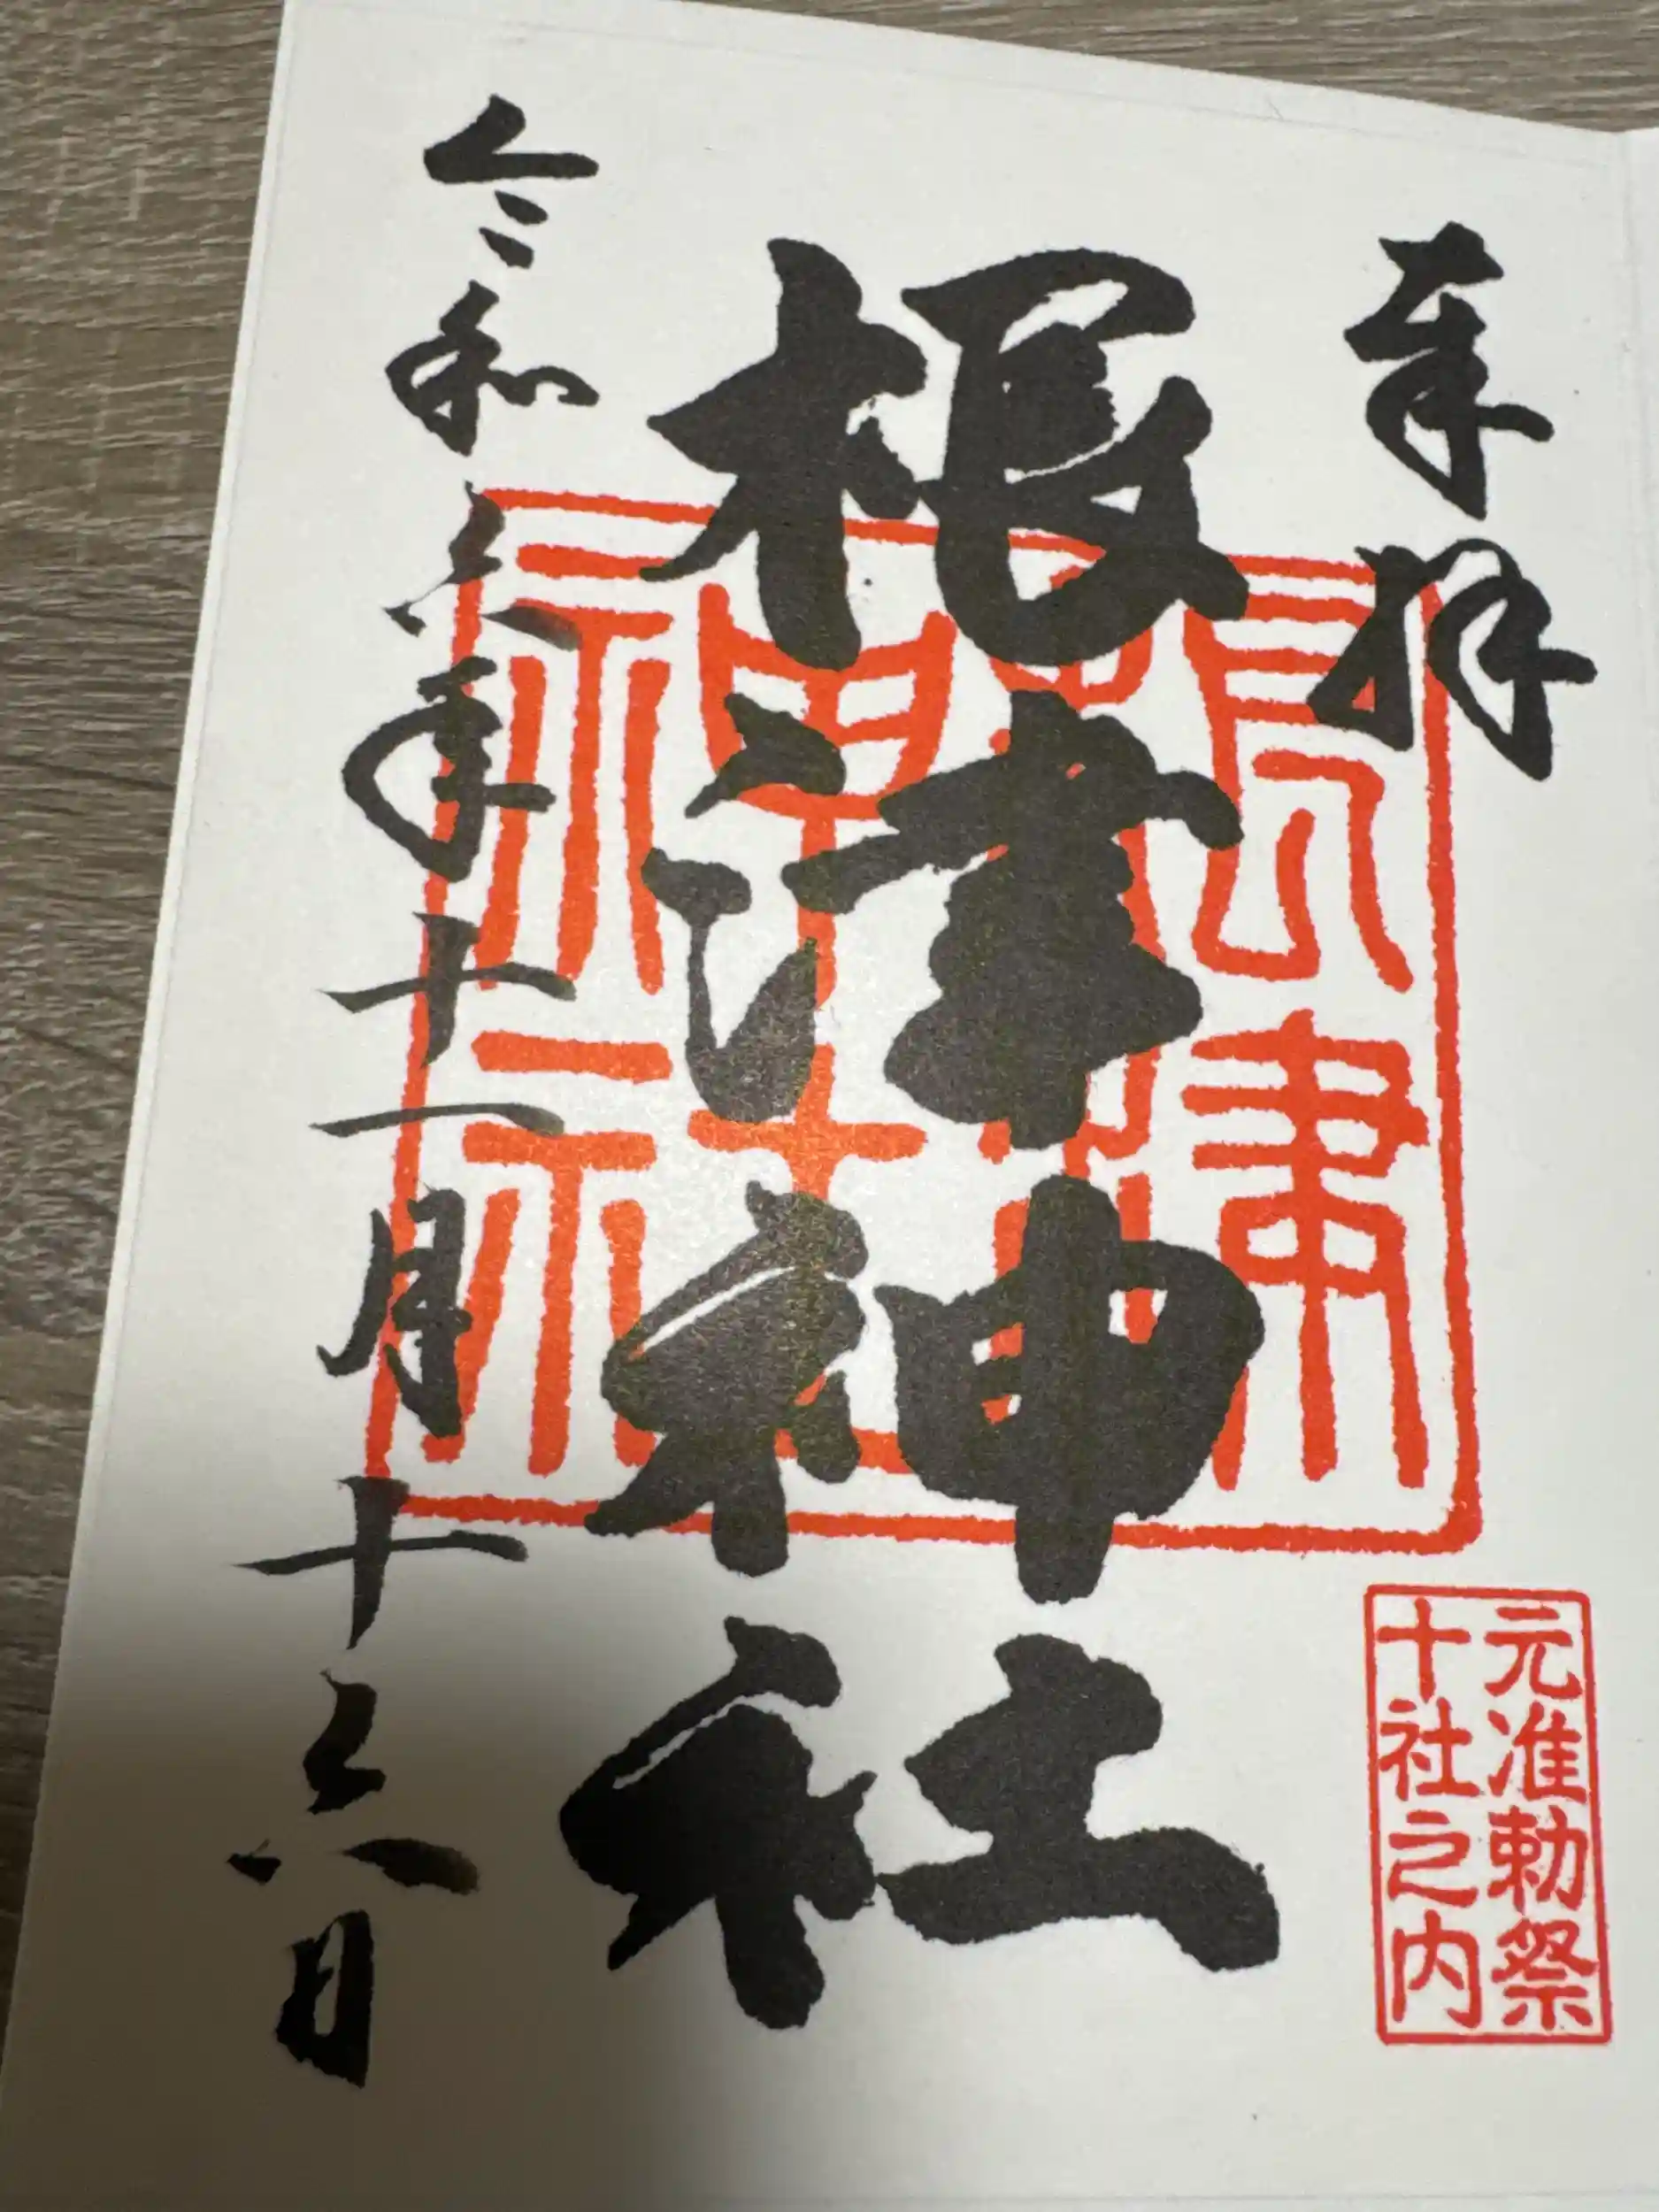 奉拝
元准勅祭
十社之内
根津神社
根津
神社
令和六年十一月十六日